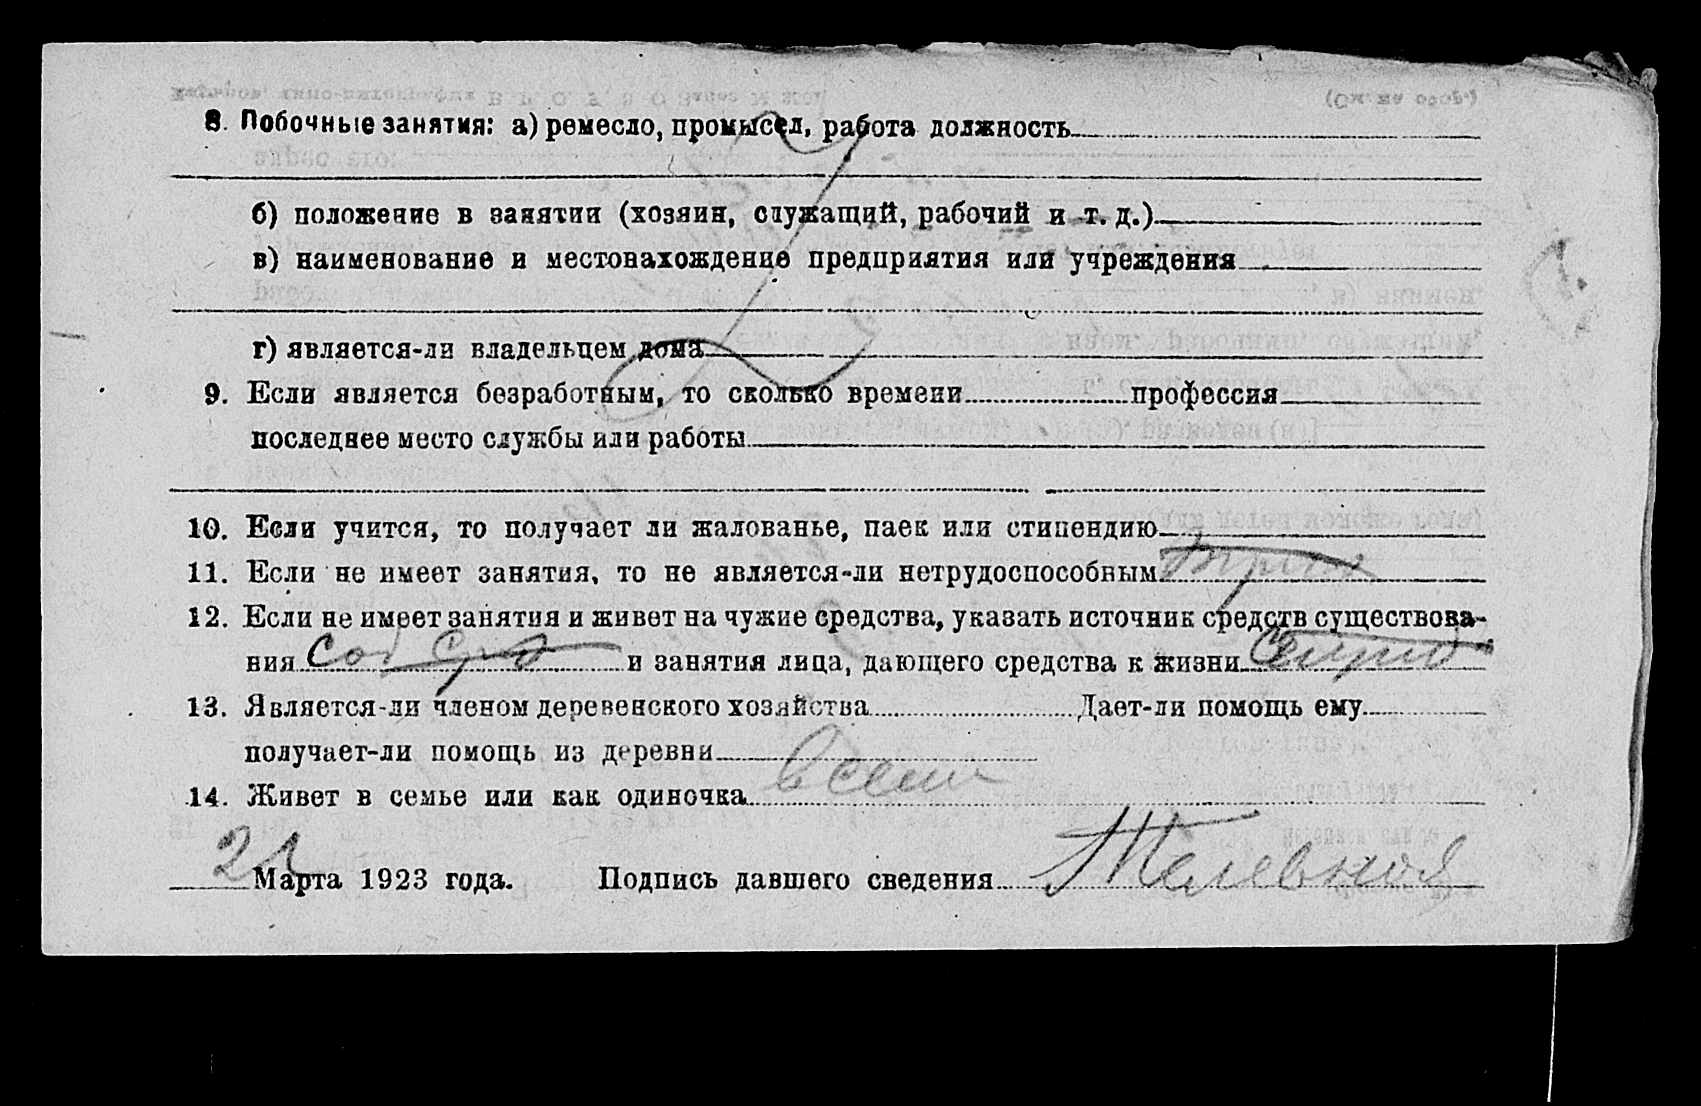 8. Побочные занятия: а) ремесло, промысел, работа должность
б) положение в занятии (хозяин, служащий, рабочий и т. д.)
в) наименование и местонахождение предприятия или учреждения
г) является-ли владельцем дома
9. Если является безработным, то сколько времени профессия
последнее место службы или работы
10. Если учится, то получает ли жалованье, паек или стипендию
11. Если не имеет занятия, то не является-ли нетрудоспособным
12. Если не имеет занятия и живет на чужие средства, указать источник средств существова-
ния и занятия лица, дающего средства к жизни
13. Является-ли членом деревенского хозяйства Дает-ли помощь ему
получает-ли помощь из деревни
14. Живет в семье или как одиночка
Марта 1923 года. Подпись давшего сведения